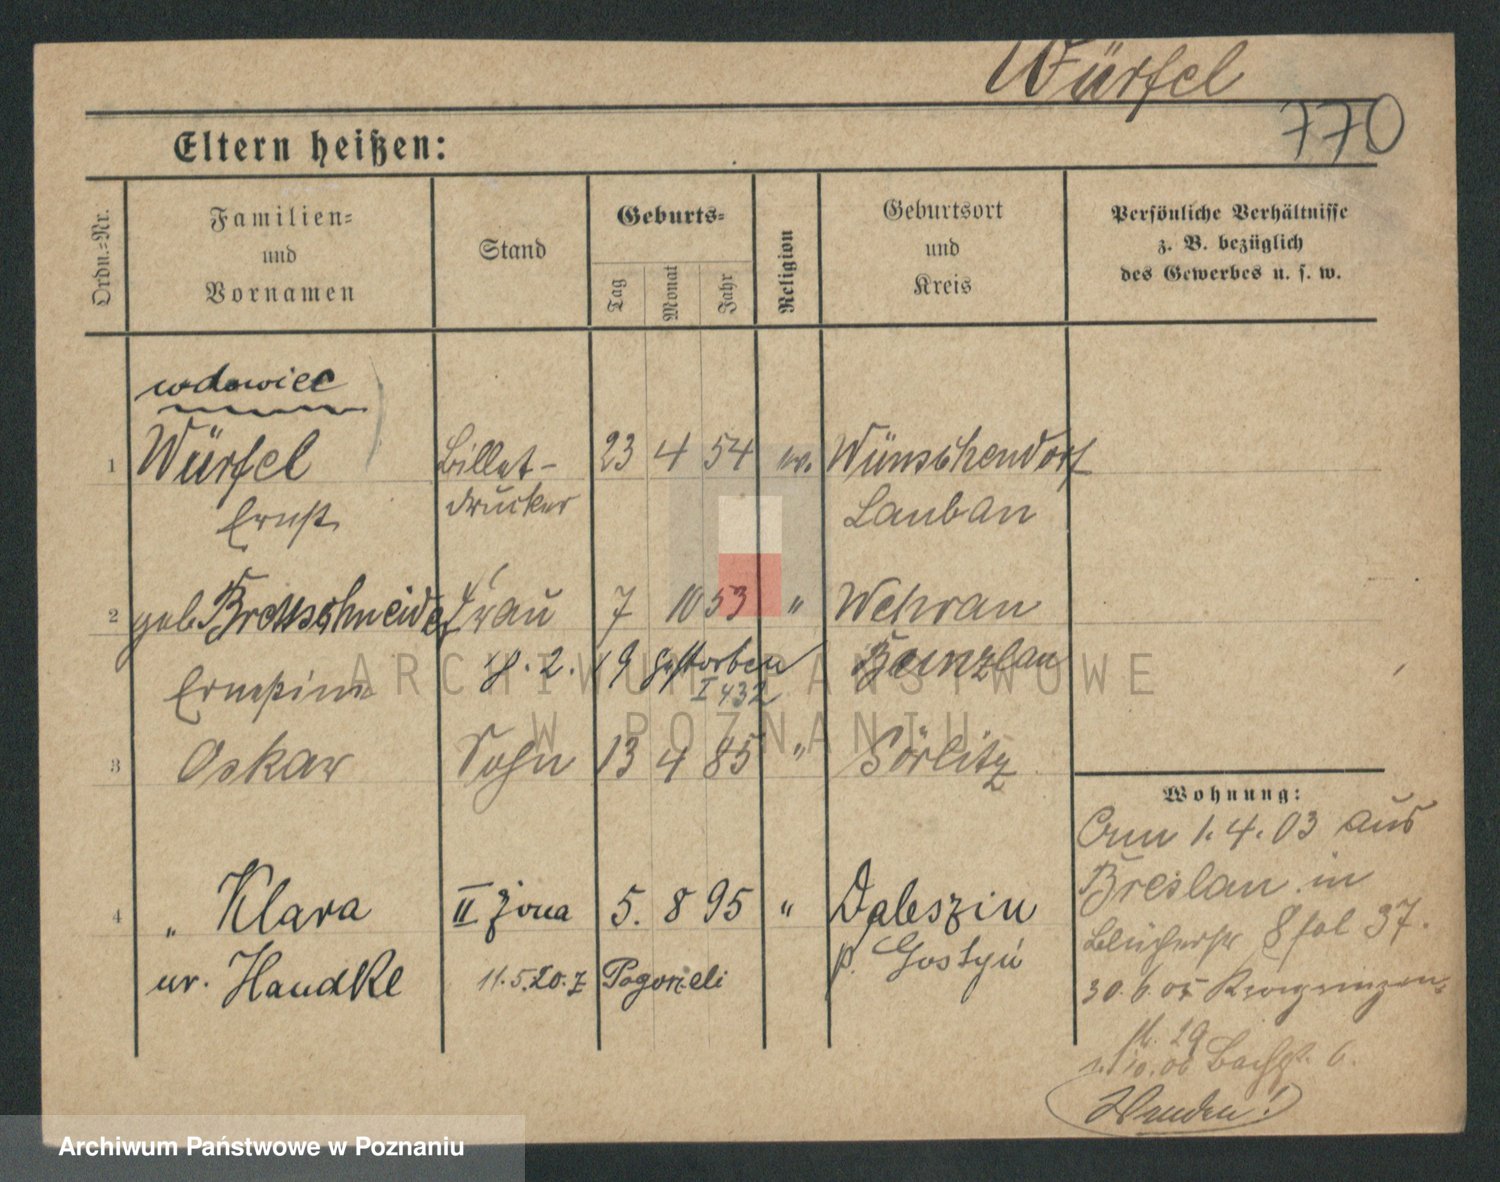 Würfel
770
Eltern heißen:
Ordn.=Nr.
Familien=
und
Vornamen
Stand
Geburts=
Tag
Monat
Jahr
Religion
Geburtsort
und
Kreis
Persönliche Verhältnisse
z. B. bezüglich
des Gewerbes u. s. w.
wdowiec
1 Würfel Billet- 23 4 54 ev. Wünschendorf
Ernst drucker Lauban
2 geb. Brettschneider Frau 7 10 53 " Wehrau
Ernestine 2. 19 gestorben Bunzlau
I 432
3 Oskar Sohn 13 4 85 " Görlitz
Wohnung:
Am 1.4.03 aus
Breslau in
4 " Klara II żona 5. 8 95 " Daleszin
Blücherstr 8 fol 37.
p. Gostyń
ur. Handke 11.5.20. z Pogorzeli
30.6.05 Kronprinzen-
29
10.06 Bachstr. 6.
Wenden!
ARCHIWUM PAŃSTWOWE
W POZNANIU
Archiwum Państwowe w Poznaniu